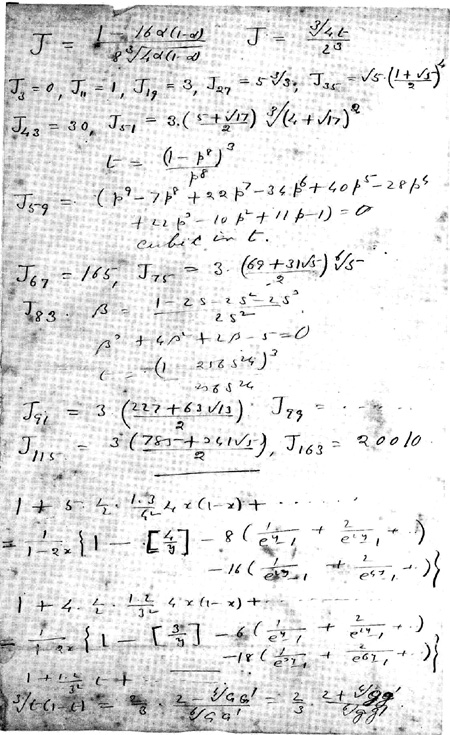 J = (1 - 16α(1-α)) / (8 ∛(4α(1-α)))    J = ∛(4t) / 2³
J₃ = 0, J₁₁ = 1, J₁₉ = 3, J₂₇ = 5∛3, J₃₅ = √5 · ((1+√5)/2)⁴
J₄₃ = 30, J₅₁ = 3·((5+√17)/2) ∛(4+√17)²
t = (1 - p⁸)³ / p⁸
J₅₉ = (p⁹ - 7p⁸ + 22p⁷ - 34p⁶ + 40p⁵ - 28p⁴
+ 22p³ - 10p² + 11p - 1) = 0
cubic in t.
J₆₇ = 165, J₇₅ = 3 · ((69 + 31√5)/2) ⁶√5
J₈₃. β = (1 - 2s - 2s² - 2s³) / 2s²
β³ + 4β² + 2β - 5 = 0
t = -(1 256s²⁴)³ / 256s²⁴
J₉₁ = 3 ((227 + 63√13)/2)  J₉₉ = ......
J₁₁₅ = 3 ((785 + 341√5)/2), J₁₆₃ = 20010.
1 + 5 · 1/2 · (1·3)/4² 4x(1-x) + ......
= 1/(1-2x) {1 - [4/y] - 8 (1/(e^y - 1) + 2/(e^2y - 1) + ..)
-16 (1/(e^2y - 1) + 2/(e^4y - 1) + ..)}
1 + 4 · 1/2 · (1·2)/3² 4x(1-x) + ......
= 1/(1-2x) {1 - [3/y] - 6 (1/(e^y - 1) + 2/(e^2y - 1) + ..)
-18 (1/(e^3y - 1) + 2/(e^6y - 1) + ..)}
1 + (1·2)/3² t + ......
∛(t(1-t)) = 2/3 · (2 - ∜GG′)/∜GG′ = 2/3 · (2 + ∜gg′)/∜gg′